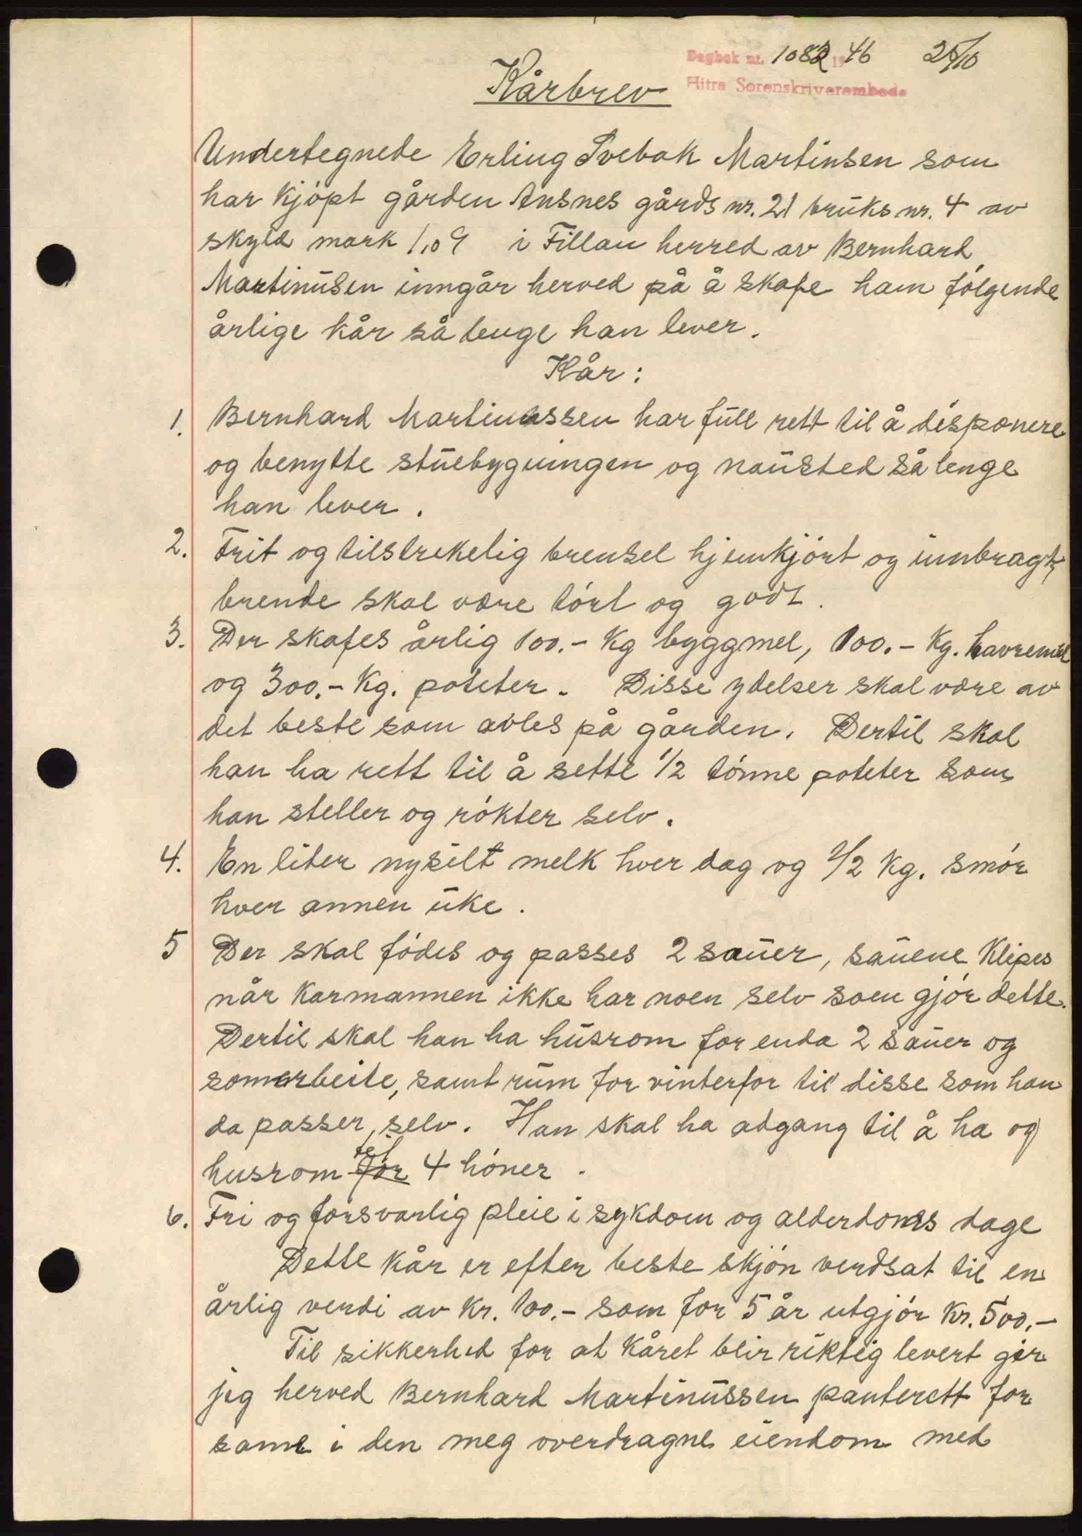 Dagbok nr. 1082 1946 25/10
Hitra Sorenskriverembede
Kårbrev
Undertegnede Erling Svebak Martinsen som
har kjöpt gården Ansnes gårds nr. 21 bruks nr. 4 av
skyld mark 1,09 i Fillan herred av Bernhard
Martinusen inngår herved på å skafe ham fölgende
årlige kår så lenge han lever.
Kår:
1. Bernhard Martinussen har full rett til å disponere
og benytte stuebygningen og nausted så lenge
han lever.
2. Frit og tilstrekelig brensel hjemkjört og innbragt,
brende skal være tört og godt.
3. Der skafes årlig 100.- Kg byggmel, 100.- Kg. havremel
og 300.- Kg. poteter. Disse ydelser skal være av
det beste som avles på gården. Dertil skal
han ha rett til å sette 1/2 tönne poteter som
han steller og rökter selv.
4. En liter nysilt melk hver dag og 1/2 Kg. smör
hver annen uke.
5 Der skal födes og passes 2 sauer, sauene klipes
når karmannen ikke har noen selv som gjör dette.
Dertil skal han ha husrom for enda 2 sauer og
somerbeite, samt rum for vinterfor til disse som han
da passer, selv. Han skal ha adgang til å ha og
husrom for til 4 höner.
6. Fri og forsvarlig pleie i sykdom og alderdoms dage
Dette kår er efter beste skjön verdsat til en
årlig verdi av Kr. 100.- som for 5 år utgjör Kr. 500.-
Til sikkerhed for at kåret blir riktig levert gir
jeg herved Bernhard Martinussen panterett for
same i den meg overdragne eiendom med